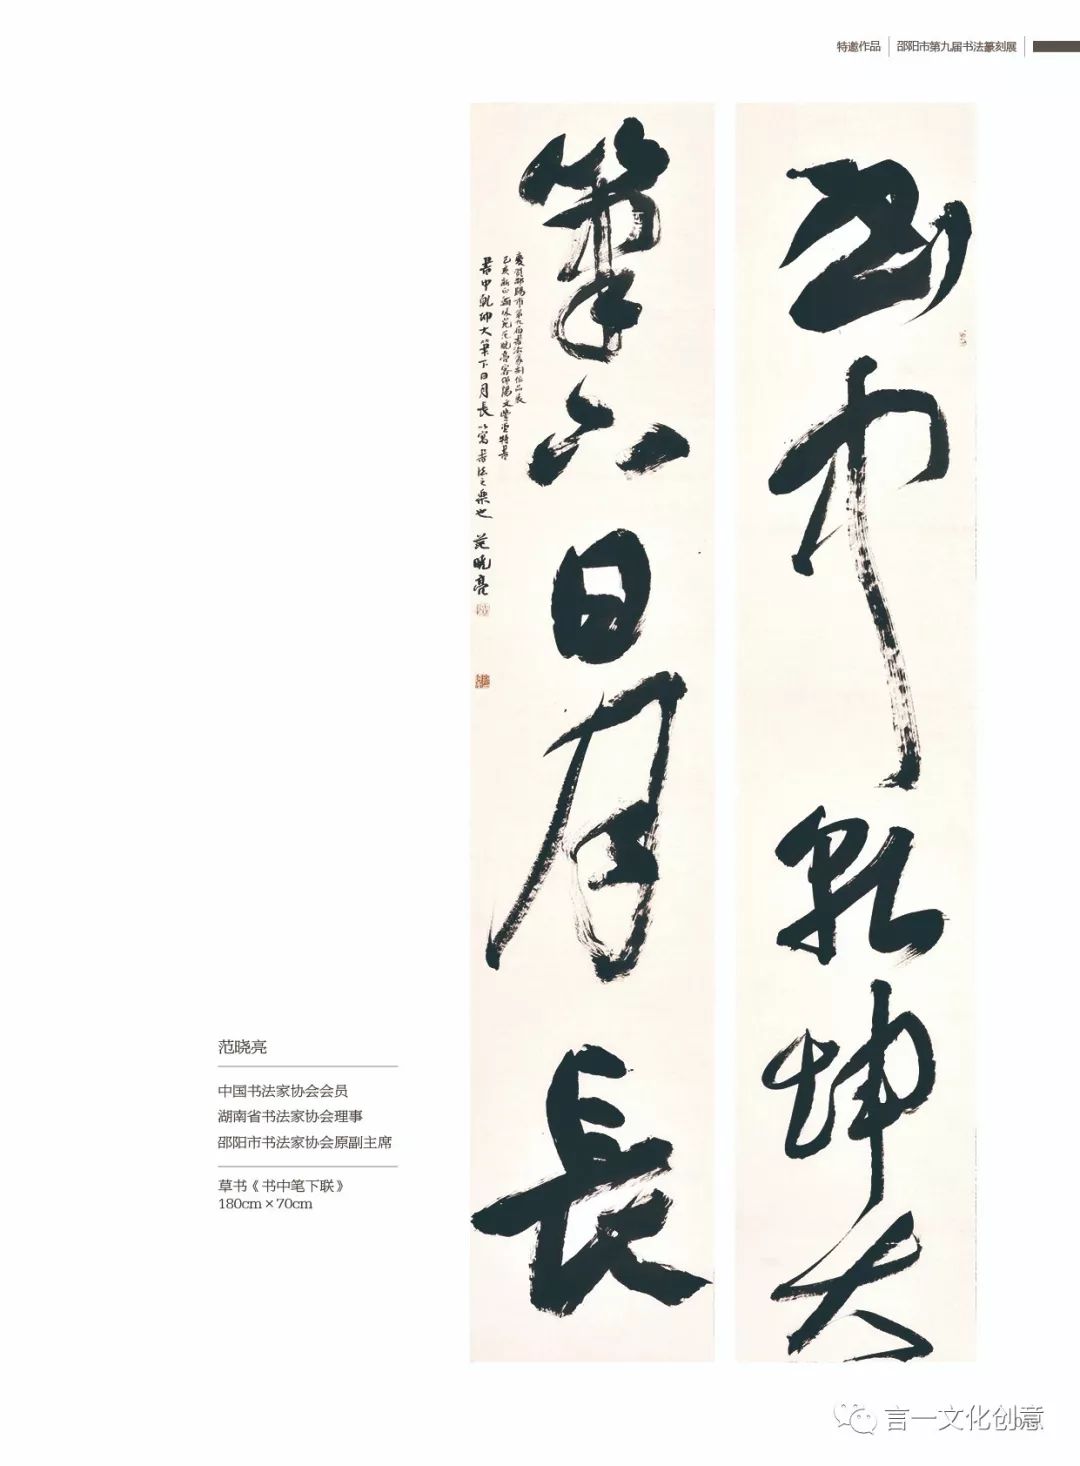 特邀作品 邵阳市第九届书法篆刻展
书中乾坤大
筆下日月長
慶賀邵陽市第九屆書法篆刻作品展
書中乾坤大筆下日月長 以寫書法之樂也 范曉亮
范晓亮
中国书法家协会会员
湖南省书法家协会理事
邵阳市书法家协会原副主席
草书《书中笔下联》
180cm×70cm
言一文化创意